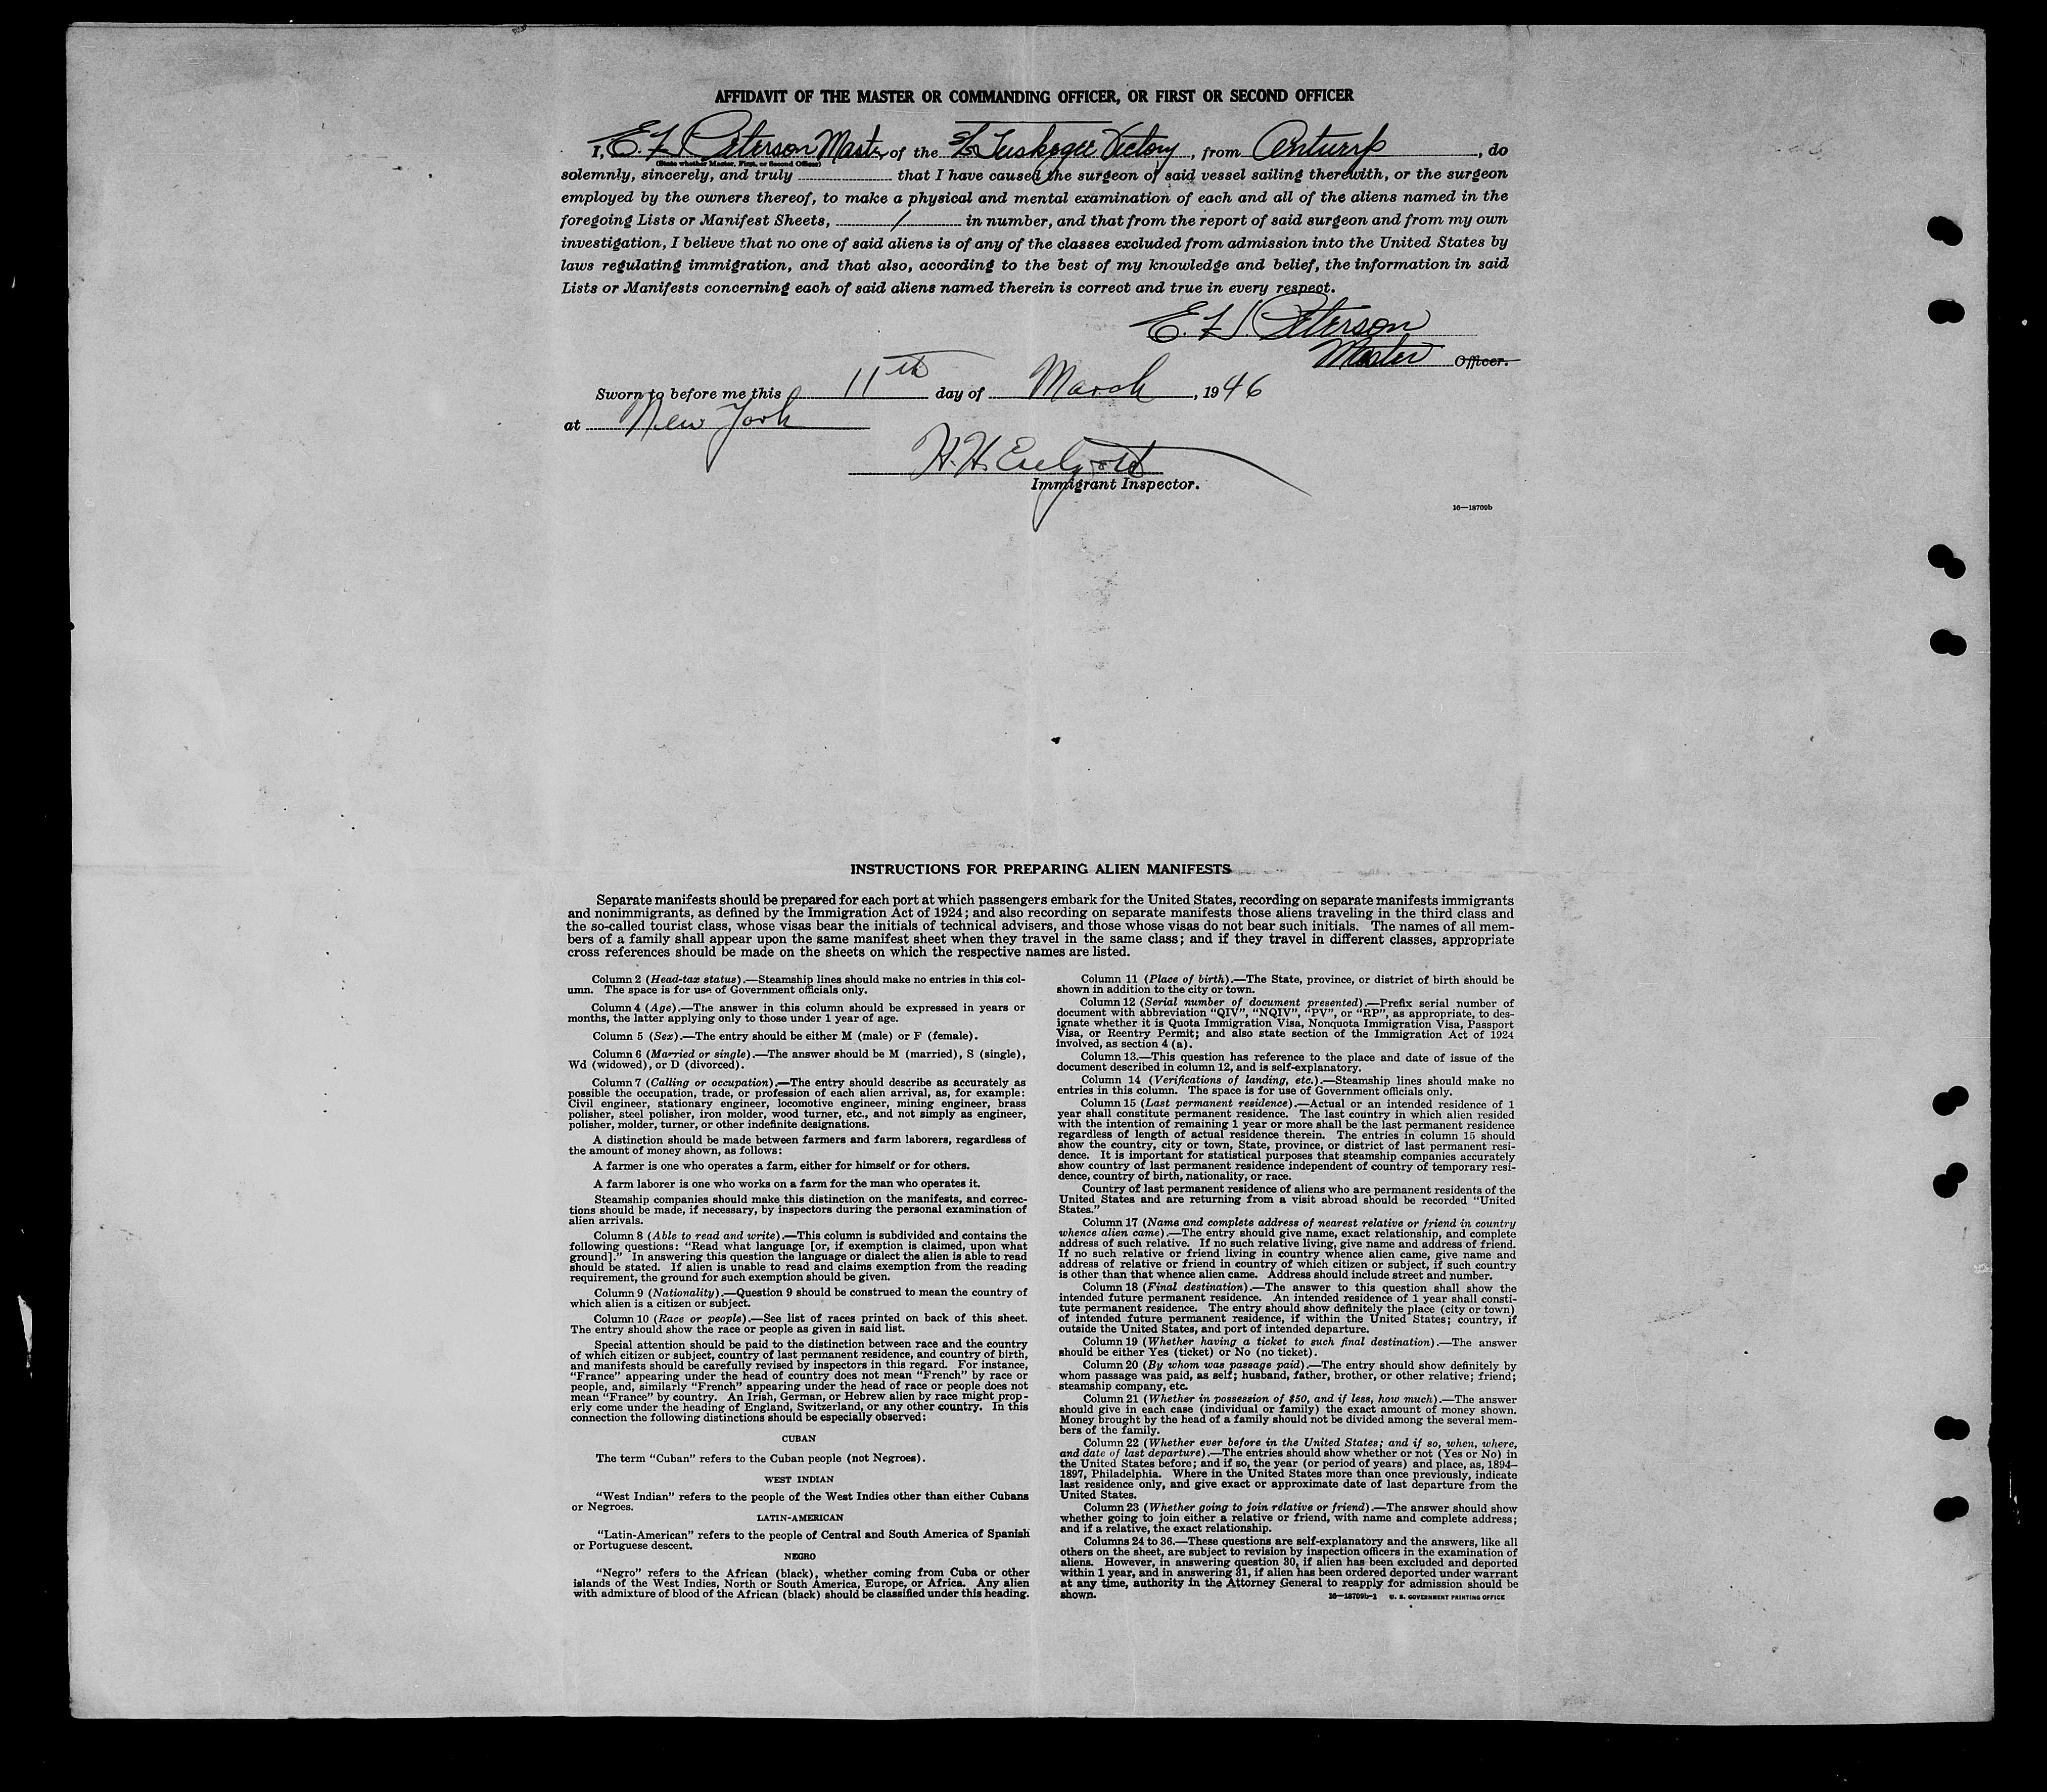 AFFIDAVIT OF THE MASTER OR COMMANDING OFFICER, OR FIRST OR SECOND OFFICER
I, E. F. Peterson Master of the S/S Tuskegee Victory, from Antwerp, do
(State whether Master, First, or Second Officer)
solemnly, sincerely, and truly that I have caused the surgeon of said vessel sailing therewith, or the surgeon
employed by the owners thereof, to make a physical and mental examination of each and all of the aliens named in the
foregoing Lists or Manifest Sheets, 1 in number, and that from the report of said surgeon and from my own
investigation, I believe that no one of said aliens is of any of the classes excluded from admission into the United States by
laws regulating immigration, and that also, according to the best of my knowledge and belief, the information in said
Lists or Manifests concerning each of said aliens named therein is correct and true in every respect.
E. F. Peterson
Master Officer.
Sworn to before me this 11th day of March, 1946
at New York
H. H.
Immigrant Inspector.
16—18709b
INSTRUCTIONS FOR PREPARING ALIEN MANIFESTS
Separate manifests should be prepared for each port at which passengers embark for the United States, recording on separate manifests immigrants
and nonimmigrants, as defined by the Immigration Act of 1924; and also recording on separate manifests those aliens traveling in the third class and
the so-called tourist class, whose visas bear the initials of technical advisers, and those whose visas do not bear such initials. The names of all mem-
bers of a family shall appear upon the same manifest sheet when they travel in the same class; and if they travel in different classes, appropriate
cross references should be made on the sheets on which the respective names are listed.
Column 2 (Head-tax status).—Steamship lines should make no entries in this col-
umn. The space is for use of Government officials only.
Column 4 (Age).—The answer in this column should be expressed in years or
months, the latter applying only to those under 1 year of age.
Column 5 (Sex).—The entry should be either M (male) or F (female).
Column 6 (Married or single).—The answer should be M (married), S (single),
Wd (widowed), or D (divorced).
Column 7 (Calling or occupation).—The entry should describe as accurately as
possible the occupation, trade, or profession of each alien arrival, as, for example:
Civil engineer, stationary engineer, locomotive engineer, mining engineer, brass
polisher, steel polisher, iron molder, wood turner, etc., and not simply as engineer,
polisher, molder, turner, or other indefinite designations.
A distinction should be made between farmers and farm laborers, regardless of
the amount of money shown, as follows:
A farmer is one who operates a farm, either for himself or for others.
A farm laborer is one who works on a farm for the man who operates it.
Steamship companies should make this distinction on the manifests, and correc-
tions should be made, if necessary, by inspectors during the personal examination of
alien arrivals.
Column 8 (Able to read and write).—This column is subdivided and contains the
following questions: “Read what language [or, if exemption is claimed, upon what
ground].” In answering this question the language or dialect the alien is able to read
should be stated. If alien is unable to read and claims exemption from the reading
requirement, the ground for such exemption should be given.
Column 9 (Nationality).—Question 9 should be construed to mean the country of
which alien is a citizen or subject.
Column 10 (Race or people).—See list of races printed on back of this sheet.
The entry should show the race or people as given in said list.
Special attention should be paid to the distinction between race and the country
of which citizen or subject, country of last permanent residence, and country of birth,
and manifests should be carefully revised by inspectors in this regard. For instance,
“France” appearing under the head of country does not mean “French” by race or
people, and, similarly “French” appearing under the head of race or people does not
mean “France” by country. An Irish, German, or Hebrew alien by race might prop-
erly come under the heading of England, Switzerland, or any other country. In this
connection the following distinctions should be especially observed:
CUBAN
The term “Cuban” refers to the Cuban people (not Negroes).
WEST INDIAN
“West Indian” refers to the people of the West Indies other than either Cubans
or Negroes.
LATIN-AMERICAN
“Latin-American” refers to the people of Central and South America of Spanish
or Portuguese descent.
NEGRO
“Negro” refers to the African (black), whether coming from Cuba or other
islands of the West Indies, North or South America, Europe, or Africa. Any alien
with admixture of blood of the African (black) should be classified under this heading.
Column 11 (Place of birth).—The State, province, or district of birth should be
shown in addition to the city or town.
Column 12 (Serial number of document presented).—Prefix serial number of
document with abbreviation “QIV”, “NQIV”, “PV”, or “RP”, as appropriate, to des-
ignate whether it is Quota Immigration Visa, Nonquota Immigration Visa, Passport
Visa, or Reentry Permit; and also state section of the Immigration Act of 1924
involved, as section 4 (a).
Column 13.—This question has reference to the place and date of issue of the
document described in column 12, and is self-explanatory.
Column 14 (Verifications of landing, etc.).—Steamship lines should make no
entries in this column. The space is for use of Government officials only.
Column 15 (Last permanent residence).—Actual or an intended residence of 1
year shall constitute permanent residence. The last country in which alien resided
with the intention of remaining 1 year or more shall be the last permanent residence
regardless of length of actual residence therein. The entries in column 15 should
show the country, city or town, State, province, or district of last permanent resi-
dence. It is important for statistical purposes that steamship companies accurately
show country of last permanent residence independent of country of temporary resi-
dence, country of birth, nationality, or race.
Country of last permanent residence of aliens who are permanent residents of the
United States and are returning from a visit abroad should be recorded “United
States.”
Column 17 (Name and complete address of nearest relative or friend in country
whence alien came).—The entry should give name, exact relationship, and complete
address of such relative. If no such relative living, give name and address of friend.
If no such relative or friend living in country whence alien came, give name and
address of relative or friend in country of which citizen or subject, if such country
is other than that whence alien came. Address should include street and number.
Column 18 (Final destination).—The answer to this question shall show the
intended future permanent residence. An intended residence of 1 year shall consti-
tute permanent residence. The entry should show definitely the place (city or town)
of intended future permanent residence, if within the United States; country, if
outside the United States, and port of intended departure.
Column 19 (Whether having a ticket to such final destination).—The answer
should be either Yes (ticket) or No (no ticket).
Column 20 (By whom was passage paid).—The entry should show definitely by
whom passage was paid, as self; husband, father, brother, or other relative; friend;
steamship company, etc.
Column 21 (Whether in possession of $50, and if less, how much).—The answer
should give in each case (individual or family) the exact amount of money shown.
Money brought by the head of a family should not be divided among the several mem-
bers of the family.
Column 22 (Whether ever before in the United States; and if so, when, where,
and date of last departure).—The entries should show whether or not (Yes or No) in
the United States before; and if so, the year (or period of years) and place, as, 1894–
1897, Philadelphia. Where in the United States more than once previously, indicate
last residence only, and give exact or approximate date of last departure from the
United States.
Column 23 (Whether going to join relative or friend).—The answer should show
whether going to join either a relative or friend, with name and complete address;
and if a relative, the exact relationship.
Columns 24 to 36.—These questions are self-explanatory and the answers, like all
others on the sheet, are subject to revision by inspection officers in the examination of
aliens. However, in answering question 30, if alien has been excluded and deported
within 1 year, and in answering 31, if alien has been ordered deported under warrant
at any time, authority in the Attorney General to reapply for admission should be
shown.
16—18709b-1 U. S. GOVERNMENT PRINTING OFFICE